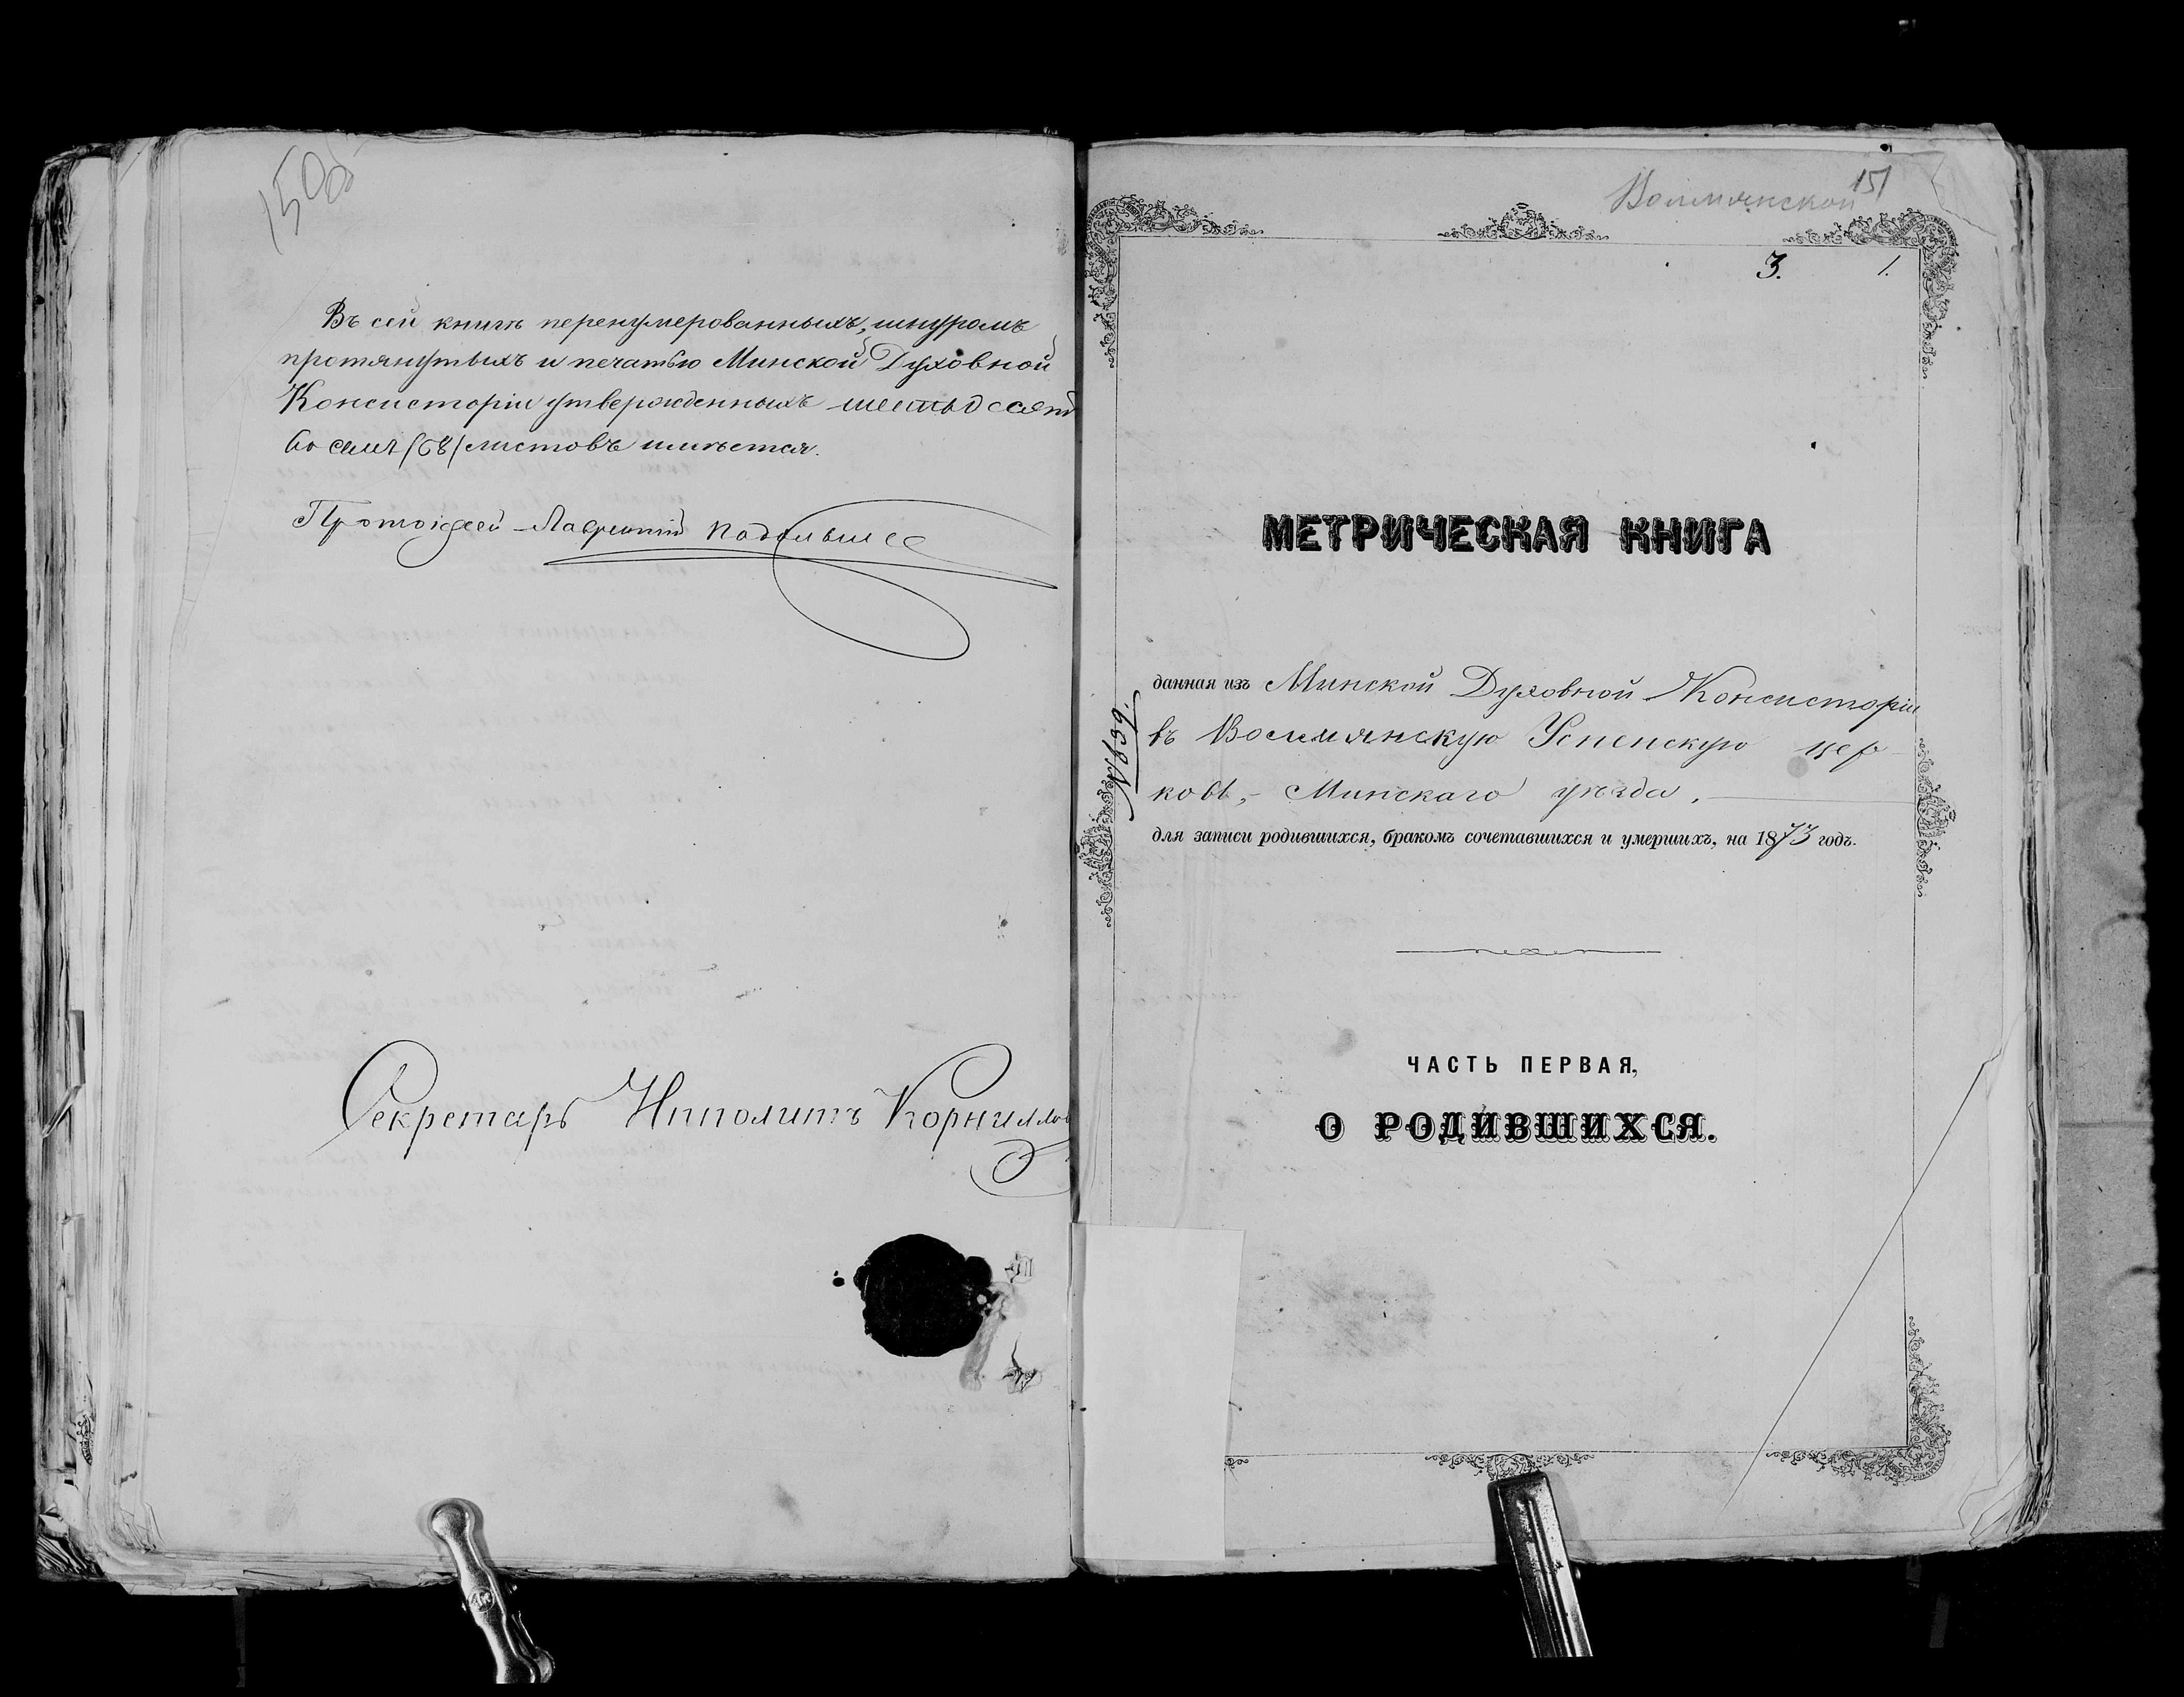 150об
Въ сей книгѣ перенумерованныхъ, шнуромъ
протянутыхъ и печатью Минской Духовной
Консисторіи утвержденныхъ шестьдесят
восемь (68) листовъ имѣется.
Протоіерей Лаврентій
Секретарь Ипполитъ Корнилло
Волмянской 151
3. 1.
МЕТРИЧЕСКАЯ КНИГА
данная изъ Минской Духовной Консисторіи
въ Волмянскую Успенскую цер-
ковь, Минскаго уѣзда,
№ 639.
для записи родившихся, бракомъ сочетавшихся и умершихъ, на 1873 годъ.
ЧАСТЬ ПЕРВАЯ,
О РОДИВШИХСЯ.